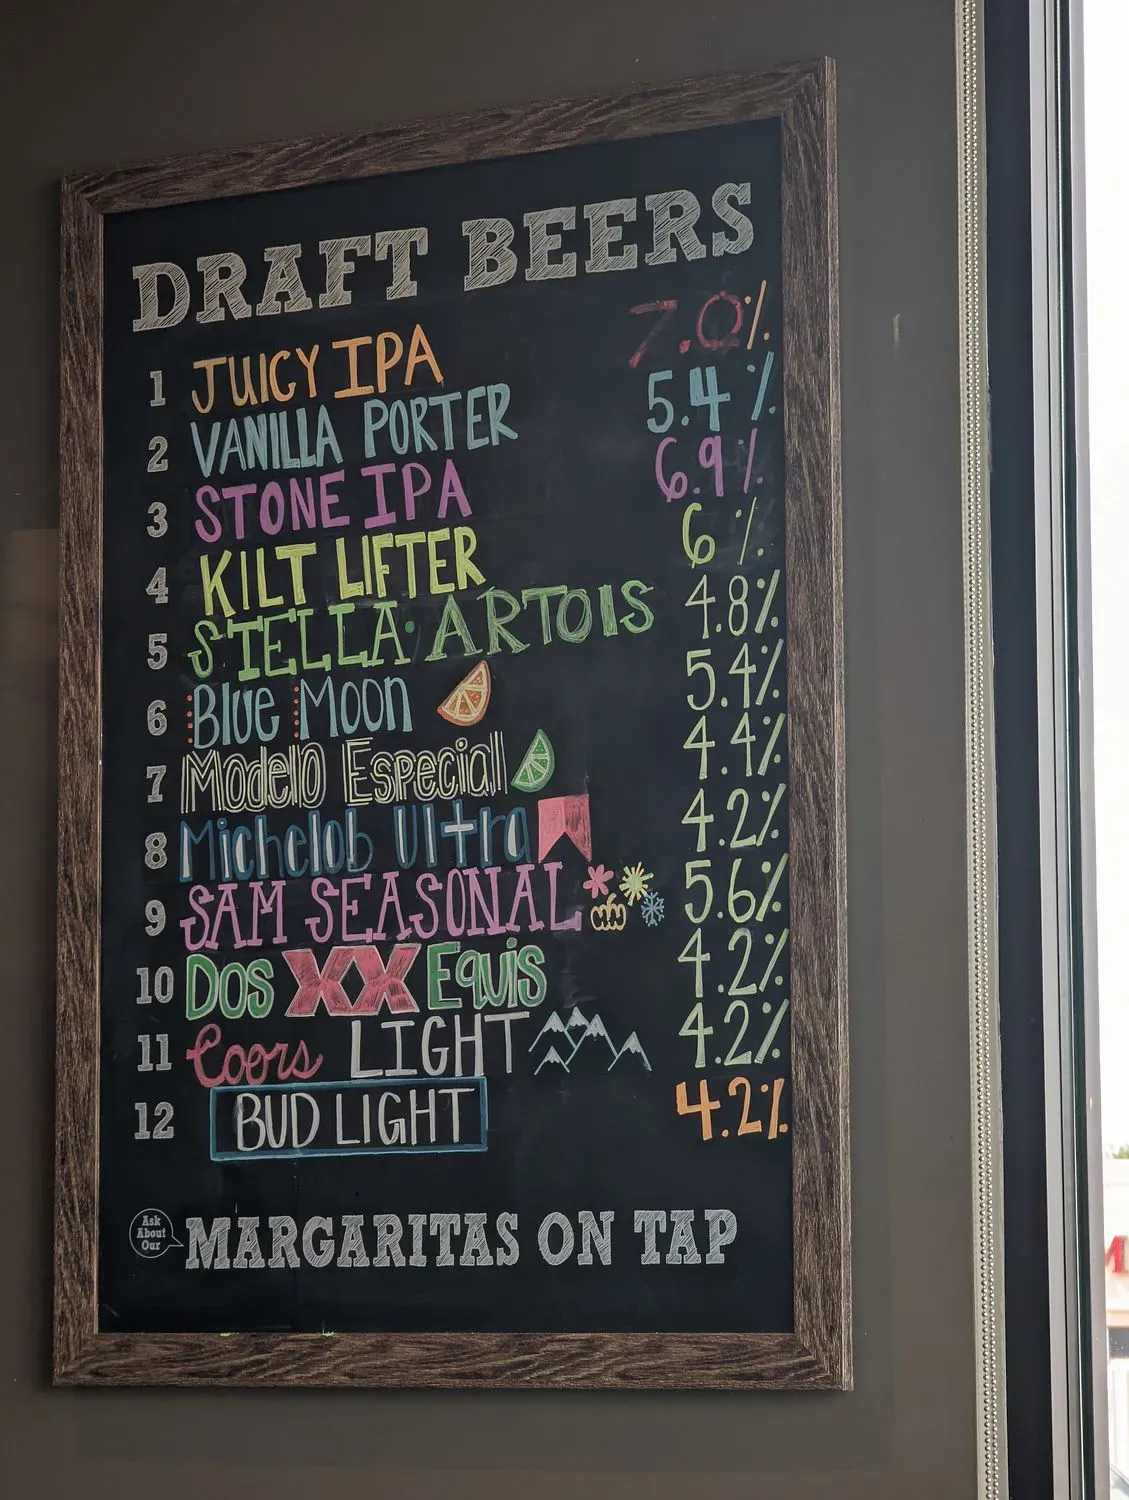 DRAFT BEERS
1 JUICY IPA 7.0%
2 VANILLA PORTER 5.4%
3 STONE IPA 6.9%
4 KILT LIFTER 6%
5 STELLA·ARTOIS 4.8%
6 Blue Moon 5.4%
7 Modelo Especial 4.4%
8 Michelob Ultra 4.2%
9 SAM SEASONAL 5.6%
10 DOS XX EQUIS 4.2%
11 Coors LIGHT 4.2%
12 BUD LIGHT 4.2%
Ask
About
Our
MARGARITAS ON TAP